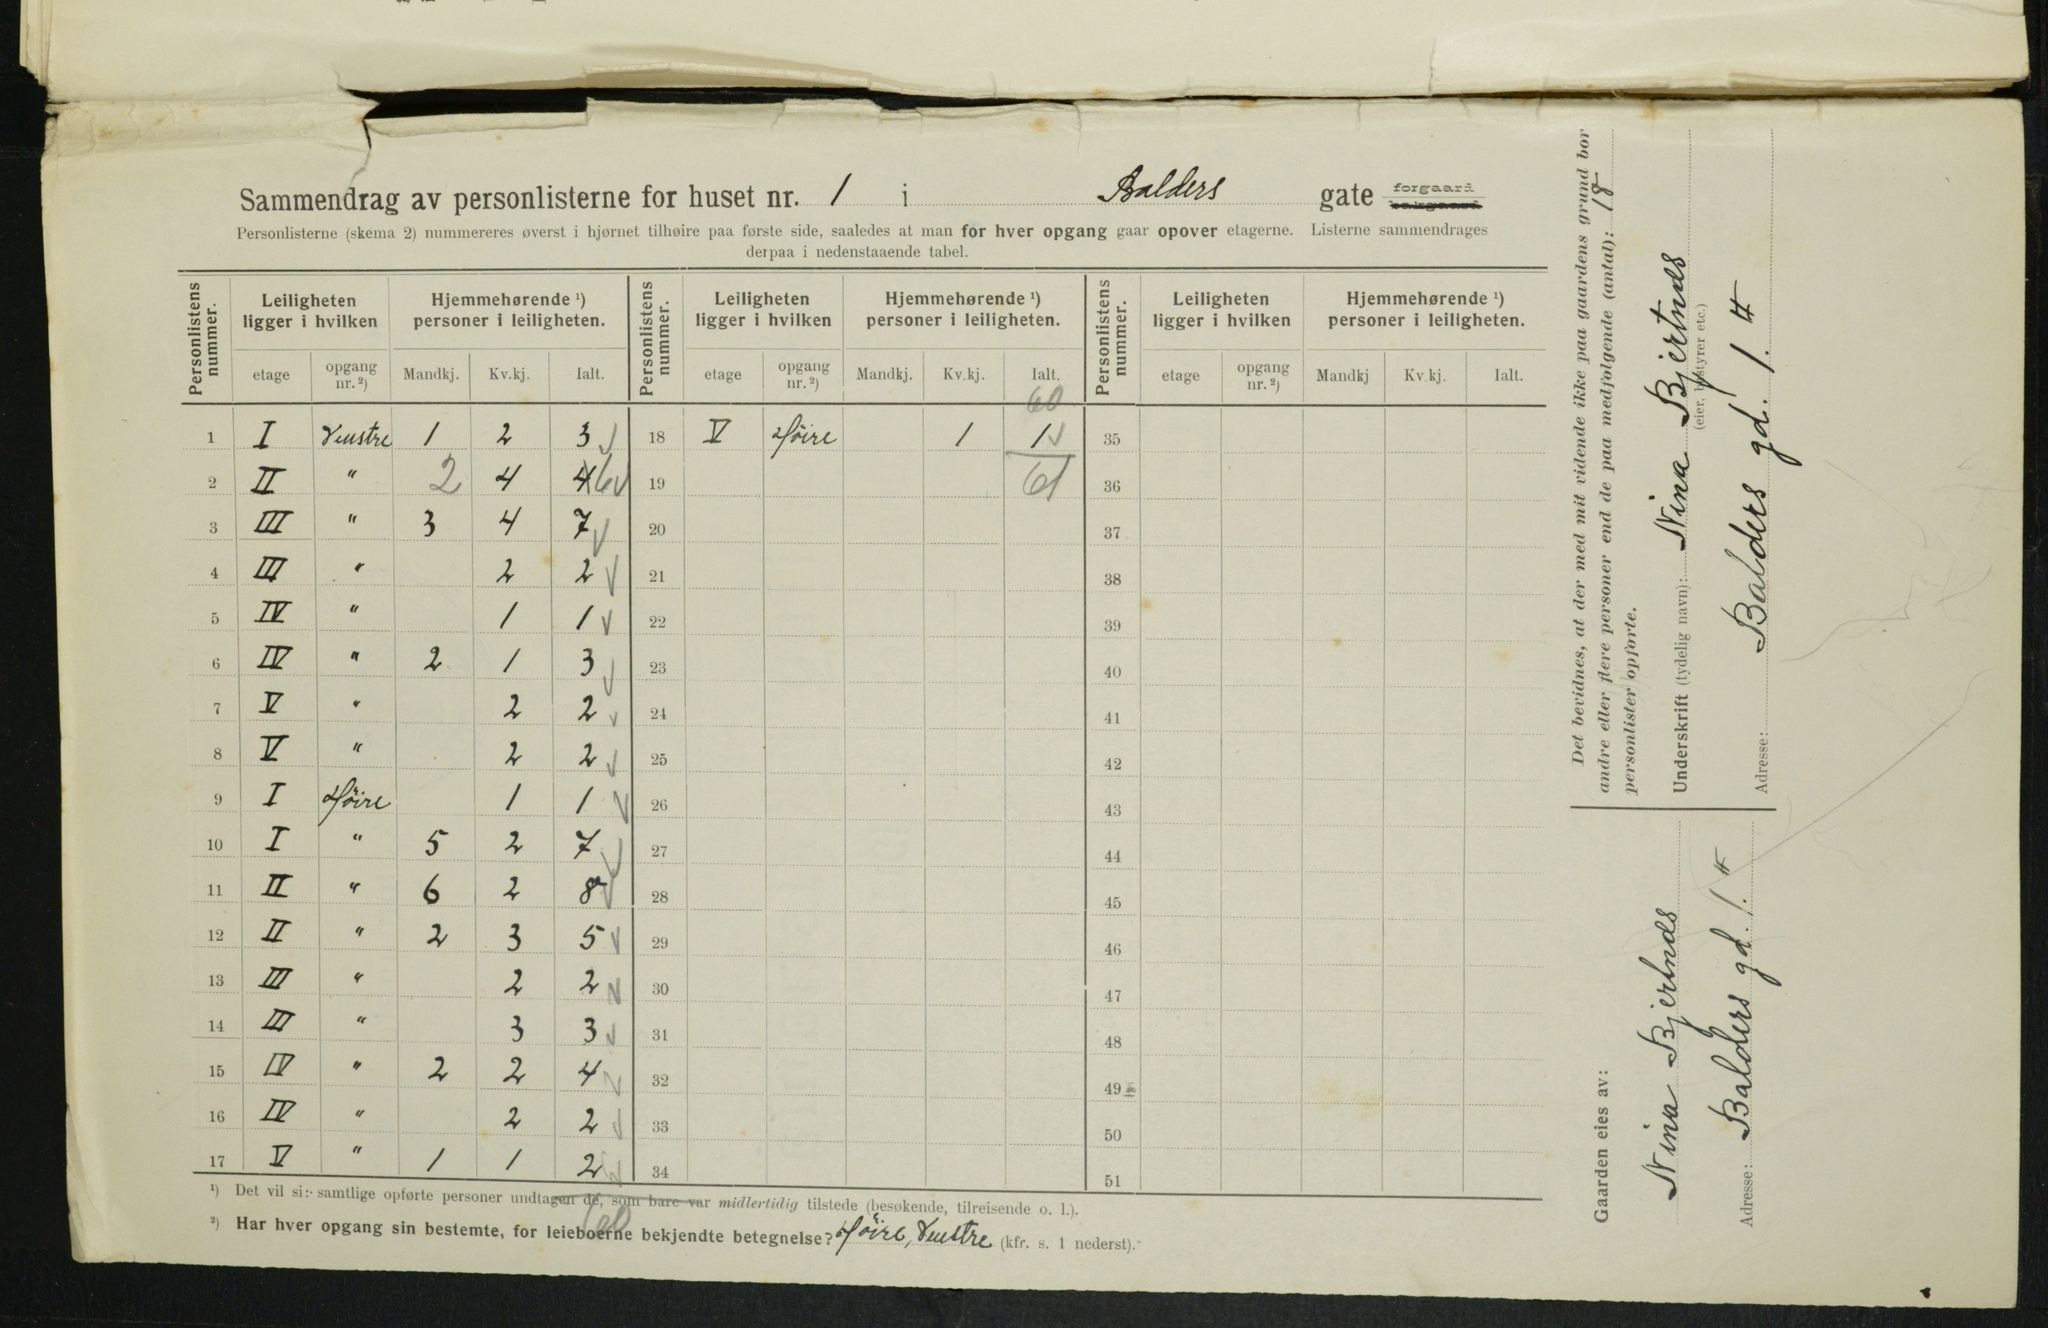 Sammendrag av personlisterne for huset nr. 1 i Balders gate forgaard bakgaard
Personlisterne (skema 2) nummereres øverst i hjørnet tilhøire paa første side, saaledes at man for hver opgang gaar opover etagerne. Listerne sammendrages
derpaa i nedenstaaende tabel.
Personlistens nummer. Leiligheten ligger i hvilken Hjemmehørende ¹) personer i leiligheten. Personlistens nummer. Leiligheten ligger i hvilken Hjemmehørende ¹) personer i leiligheten. Personlistens nummer. Leiligheten ligger i hvilken Hjemmehørende ¹) personer i leiligheten.
etage opgang nr. ²) Mandkj. Kv.kj. Ialt. etage opgang nr. ²) Mandkj. Kv.kj. Ialt. etage opgang nr. ²) Mandkj Kv.kj. Ialt.
60
1 I Venstre 1 2 3 18 V Høire 1 1 35
2 II " 2 4 4 6 19 61 36
3 III " 3 4 7 20 37
4 III " 2 2 21 38
5 IV " 1 1 22 39
6 IV " 2 1 3 23 40
7 V " 2 2 24 41
8 V " 2 2 25 42
9 I Høire 1 1 26 43
10 I " 5 2 7 27 44
11 II " 6 2 8 28 45
12 II " 2 3 5 29 46
13 III " 2 2 30 47
14 III " 3 3 31 48
15 IV " 2 2 4 32 49
16 IV " 2 2 33 50
17 V " 1 1 2 34 51
¹) Det vil si: samtlige opførte personer undtagen de, som bare var midlertidig tilstede (besøkende, tilreisende o. l.).
60
²) Har hver opgang sin bestemte, for leieboerne bekjendte betegnelse? Høire, Venstre (kfr. s. 1 nederst).
Det bevidnes, at der med mit vidende ikke paa gaardens grund bor
andre eller flere personer end de paa medfølgende (antal): 18
personlister opførte.
Underskrift (tydelig navn): Nina Bjertnæs
(eier, bestyrer etc.)
Adresse: Balders gd. 1. #
Gaarden eies av:
Nina Bjertnæs
Adresse: Balders gd. 1. #